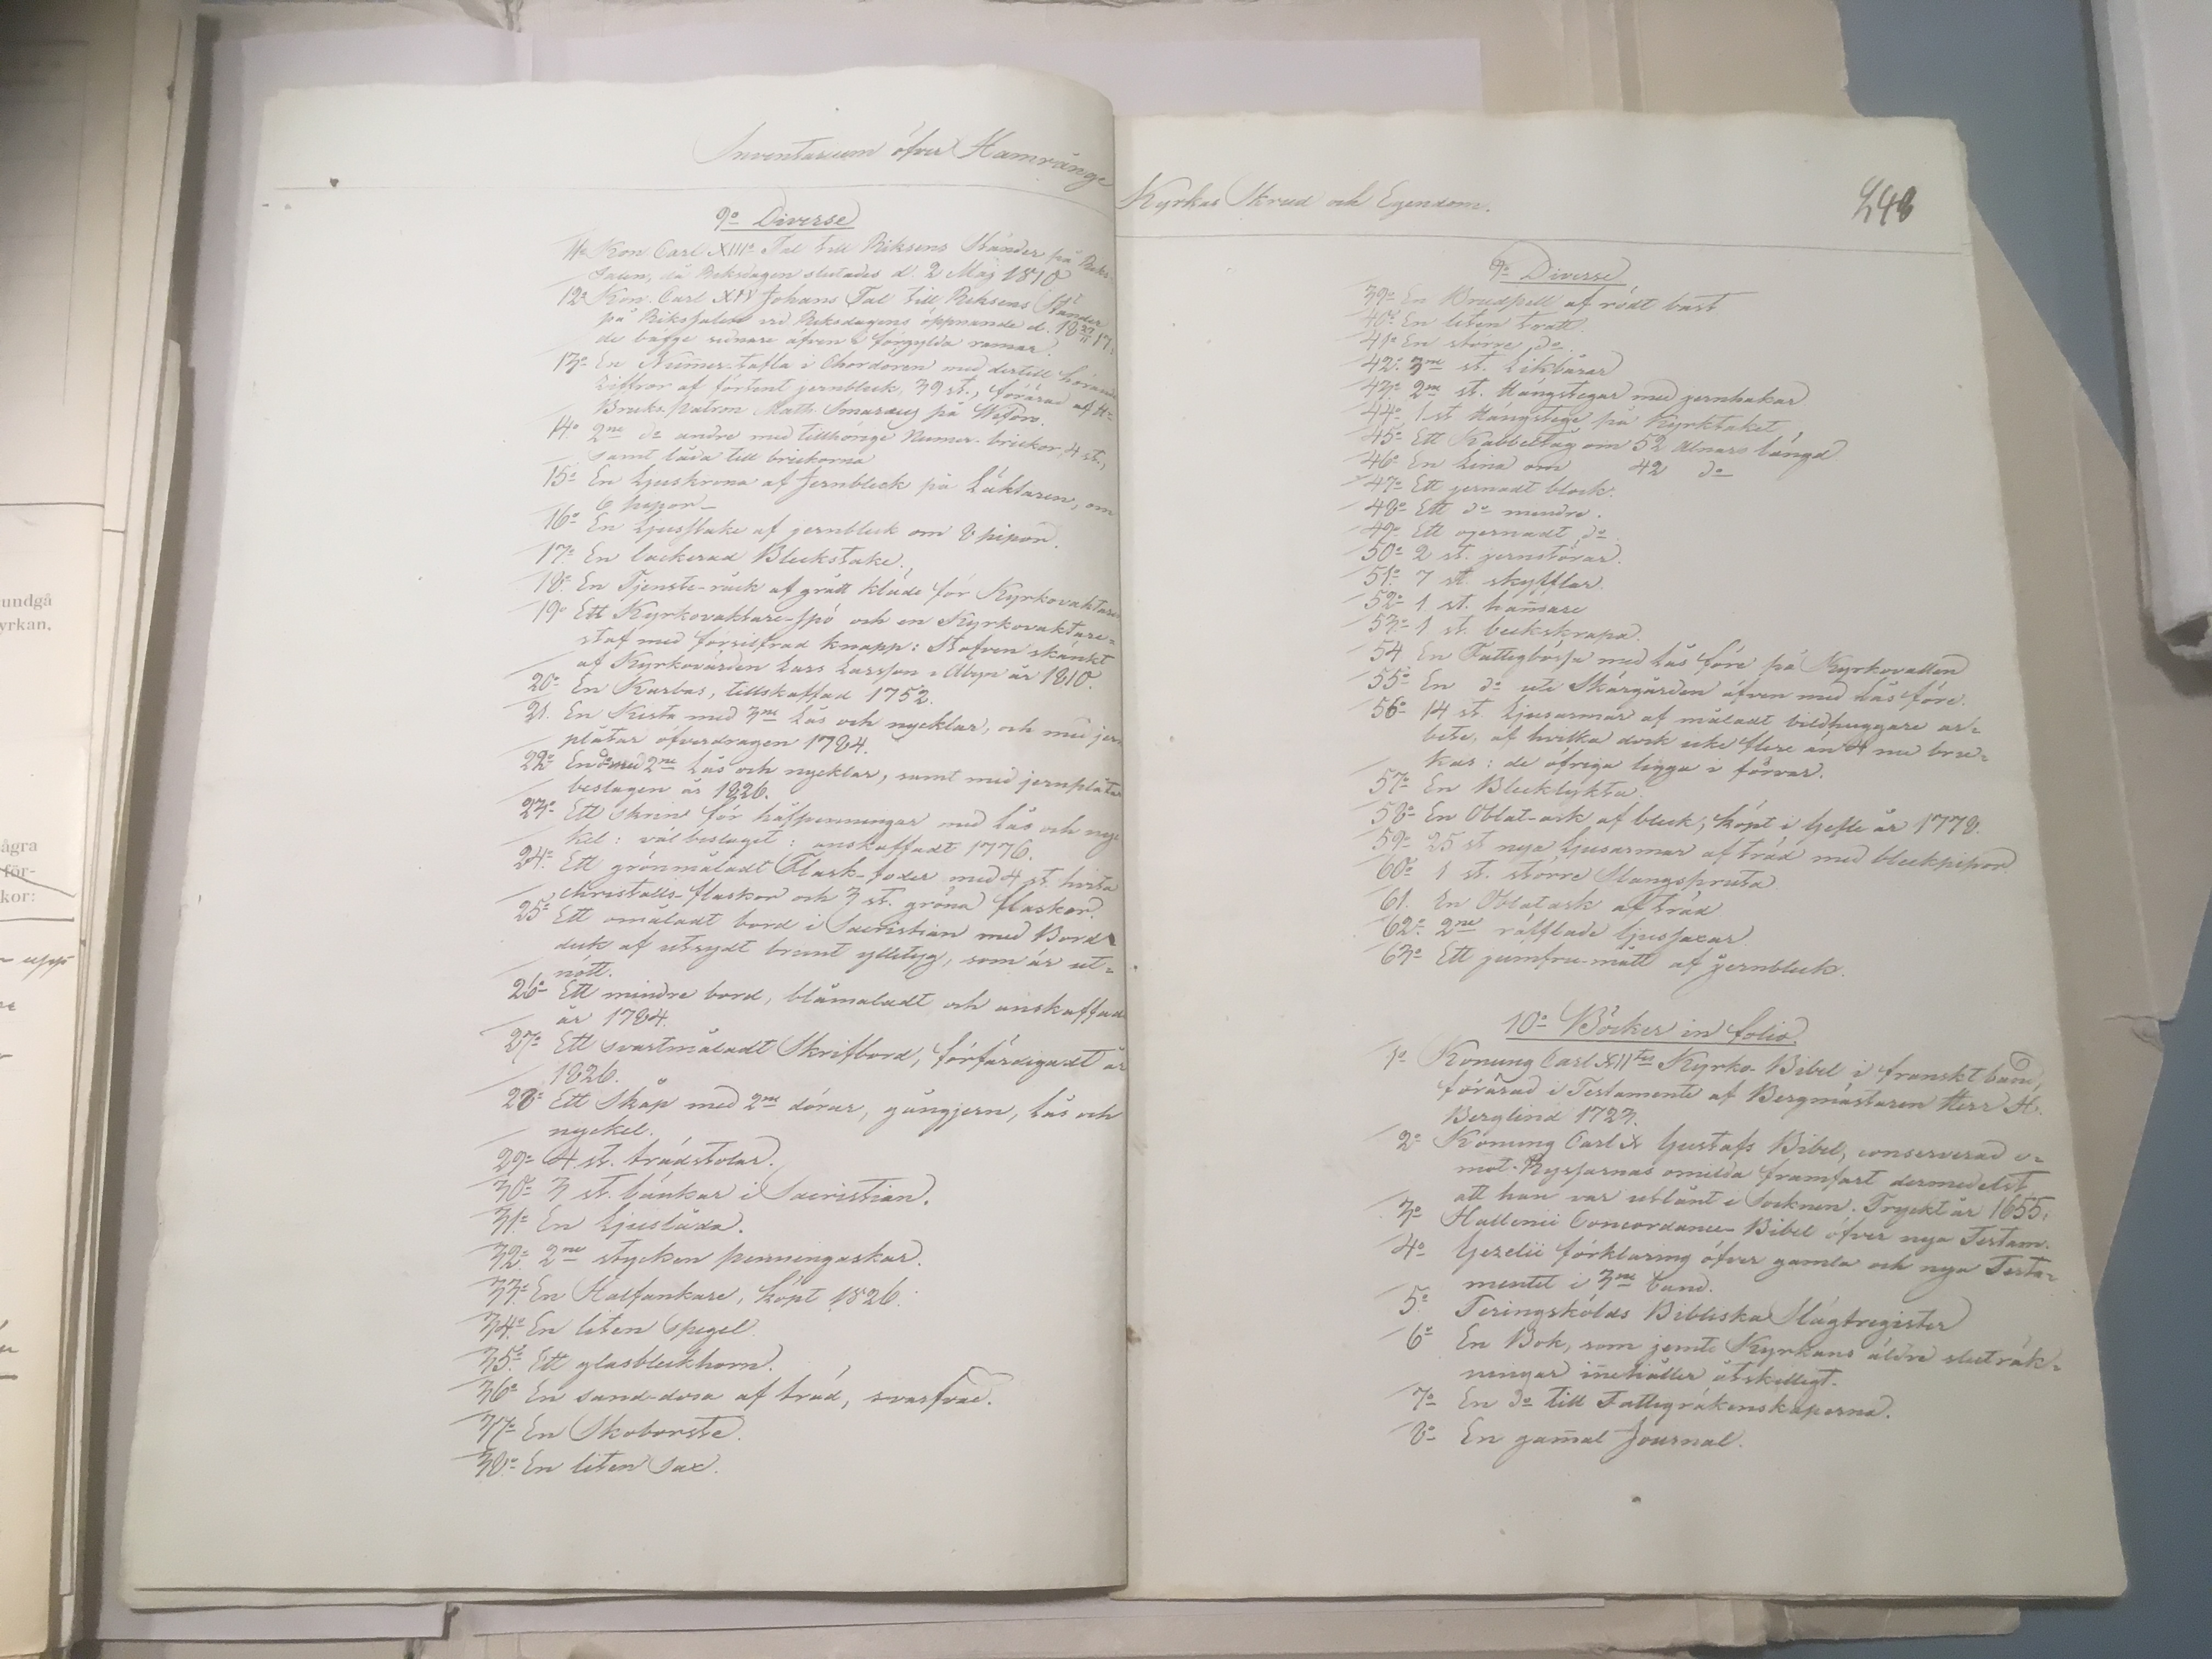 undgå
yrkan,
ågra
för-
kor:
upp
Inventarium öfver Hamrånge
9º Diverse
11º Kon Carl XIIIº Tal till Riksens Ständer på Riks-
Salen, då Riksdagen slutades d. 2 Maj 1810
12º Kon. Carl XIV Johans Tal till Riksens Ständer
på RiksSalen vid Riksdagens öppnande d.
de bägge sednare äfven i förgylda ramar.
13º En Numer-tafla i Chordören med dertill hörande
Ziffror af förtent jernbleck, 39 st., förärad af H-
Bruks-patron Math.
14º 2ne dº andre med tillhörige Numer-brickor, 4 st.,
samt låda till brickorna
15º En Ljuskrona af Jernbleck på Läktaren, om
6 pipor
16º En Ljusstake af jernbleck om 8 pipor.
17º En lackerad Bleckstake.
18º En Tjenste-råck af grått kläde för Kyrkovaktaren
19º Ett Kyrkovaktare-spö och en Kyrkovaktare-
staf med försilfrad knapp: Stafven skänkt
af Kyrkovärden Lars Larsson i Åbyn år 1810.
20º En Karbas, tillskaffad 1752.
21. En Kista med 3ne Lås och nycklar, och med jern
plåtar öfverdragen 1784.
22º En dº med 2ne Lås och nycklar, samt med jernplåtar
beslagen år 1826.
23º Ett skrin för håfpenningar med Lås och nyc
kel: väl beslaget: anskaffadt 1776.
24º Ett grönmåladt Flask-foder med 4 st. hvita
christalls-flaskor och 3 st. gröna flaskor.
25º Ett omåladt bord i Sacristian med Bord
duk af utsydt brunt ylletyg, som är ut-
nött.
26º Ett mindre bord, blåmåladt och anskaffad
år 1784.
27º Ett svartmåladt Skrifbord, förfärdigadt år
1826.
28º Ett Skåp med 2ne dörar, gångjern, Lås och
nyckel.
29º 4 st. trädstolar.
30º 3 st. bänkar i Sacristian.
31º En Ljuslåda.
32º 2ne stycken penningaskar.
33º En Halfankare, köpt 1826.
34º En liten Spegel.
35º Ett glasbleckhorn.
36º En sand-dosa af träd, svarfvad.
37º En Skoborste.
38º En liten Sax.
Kyrkas Skrud och Egendom.
248
9º Diverse
39º En Brudpell af rödt
40º En liten tratt.
41º En större dº.
42º 3ne st. Likbårar
43º 2ne st. Hängstegar med jernhakar
44º 1 st Hängstege på Kyrktaket
45º Ett Kabbeltåg om 52 Alnars längd
46º En Lina om 42 dº
47º Ett jernadt block.
48º Ett dº mindre.
49º Ett ojernadt dº
50º 2 st. jernstörar.
51º 7 st. skyfflar.
52º 1 st. ham̄are
53º 1 st. beckskrapa.
54 En Fattigbössa med Lås före på Kyrkovallen
55º En dº ute Skärgården äfven med Lås före.
56º 14 st. Ljusarmar af måladt bildhuggare ar-
bete, af hvilka dock icke flere än 4 nu bru-
kas: de öfriga ligga i förvar.
57º En Blecklykta.
58º En Oblat-ask af bleck, köpt i Gefle år 1778.
59º 25 st nya Ljusarmar af träd med bleckpipor
60º 1 st. större Slangspruta.
61. En Oblatask af träd
62º 2ne räfflade ljussaxar.
63º Ett jumfru-mått af jernbleck.
10º Böcker in folio.
1º Konung Carl XIItes Kyrko-Bibel i franskt band,
förärad i Testamente af Bergmästaren Herr H.
Berglind 1723.
2º Konung Carl X Gustafs Bibel, conserverad e-
mot Ryssarnas omilda framfart dermedelst
att han var utlånt i Socknen. Tryckt år 1655.
3º Hallenii Concordance-Bibel öfver nya Testam.
4º Gezelii förklaring öfver gamla och nya Testa-
mentet i 3ne band.
5º Peringskölds Bibliska Slägtregister
6º En Bok, som jemte Kyrkans äldre sluträk-
ningar in̄ehåller åtskilligt.
7º En dº till Fattigräkenskaperna.
8º En gam̄al Journal.